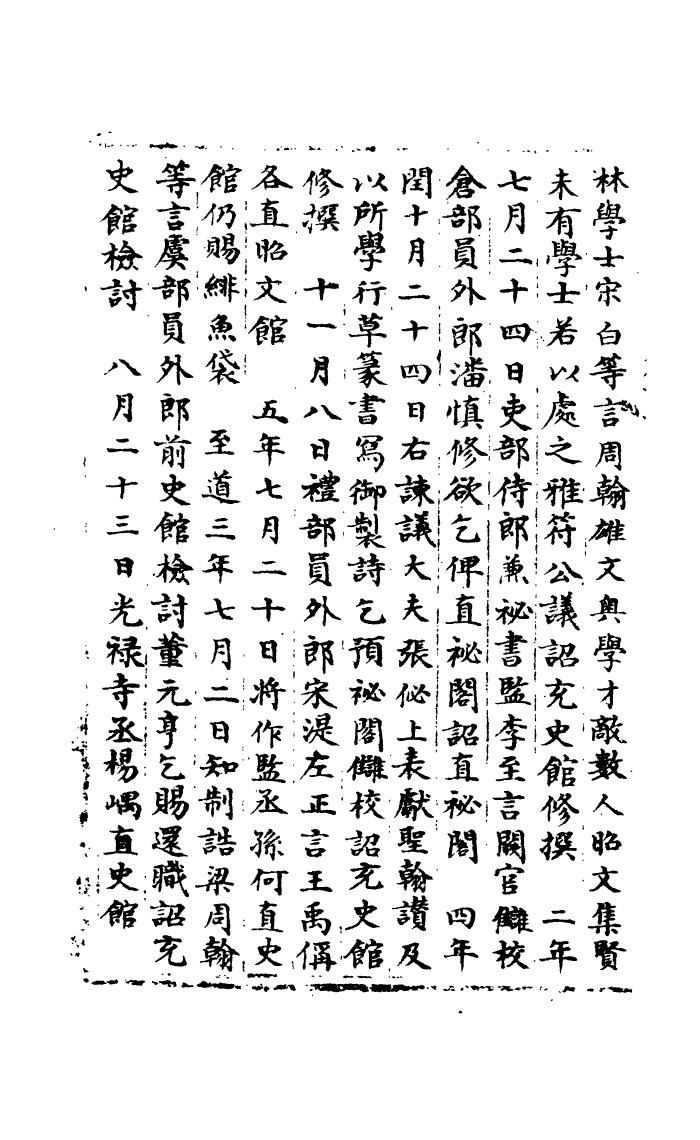 林學士宋白等言周翰雄文奧學才敵數人昭文集賢
未有學士若以處之雅符公議詔充史館修撰　二年
七月二十四日吏部侍郎兼祕書監李至言闕官讎校
倉部員外郎潘慎修欲乞俾直祕閣詔直祕閣　四年
閏十月二十四日右諫議大夫張佖上表獻聖翰讃及
以所學行草篆書寫御製詩乞預祕閣讎校詔充史館
修撰　十一月八日禮部員外郎宋湜左正言王禹偁
各直昭文館　五年七月二十日將作監丞孫何直史
館仍賜緋魚袋　至道三年七月二日知制誥梁周翰
等言虞部員外郎前史館檢討董元亨乞賜還職詔充
史館檢討　八月二十三日光祿寺丞楊嵎直史館